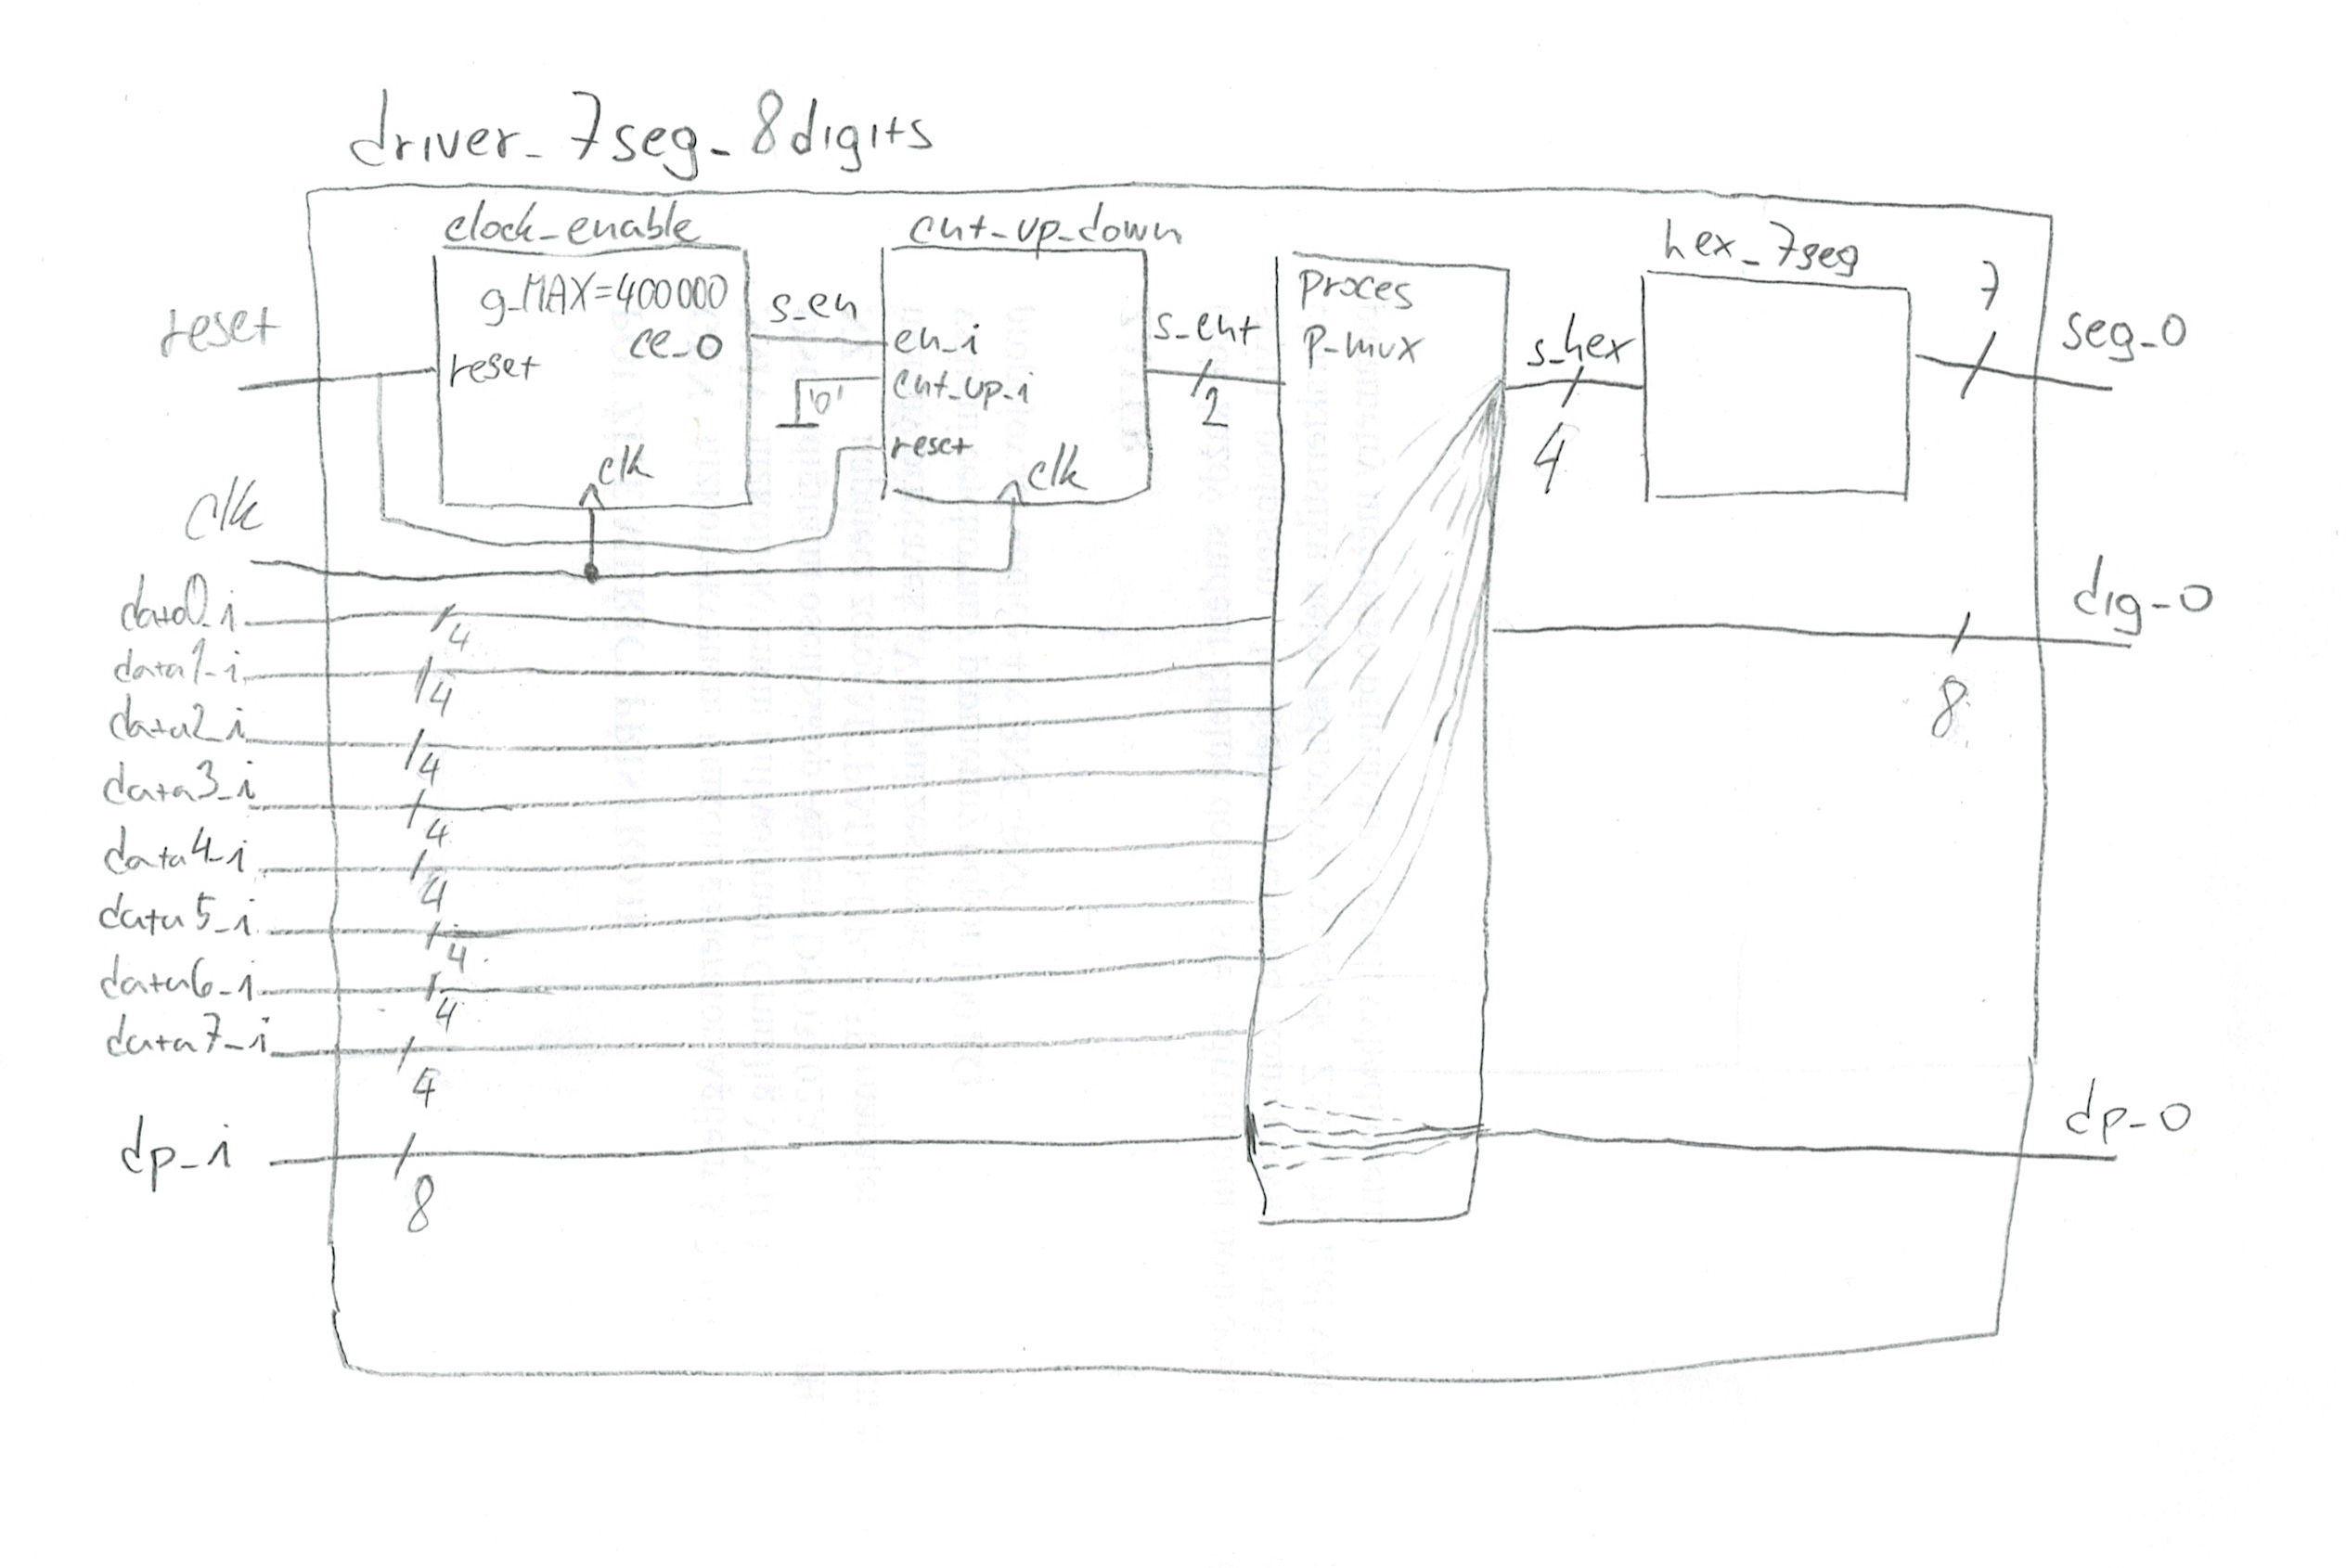 driver_7seg_8digits
clock_enable
g_MAX=400000
ce_o
reset
clk
s_en
cnt_up_down
en_i
cnt_up_i
'0'
reset
clk
s_cnt
2
Proces
P_mux
s_hex
4
hex_7seg
7
seg_o
reset
clk
data0_i
4
data1_i
4
data2_i
4
data3_i
4
data4_i
4
data5_i
4
data6_i
4
data7_i
4
dp_i
8
dig_o
8
dp_o